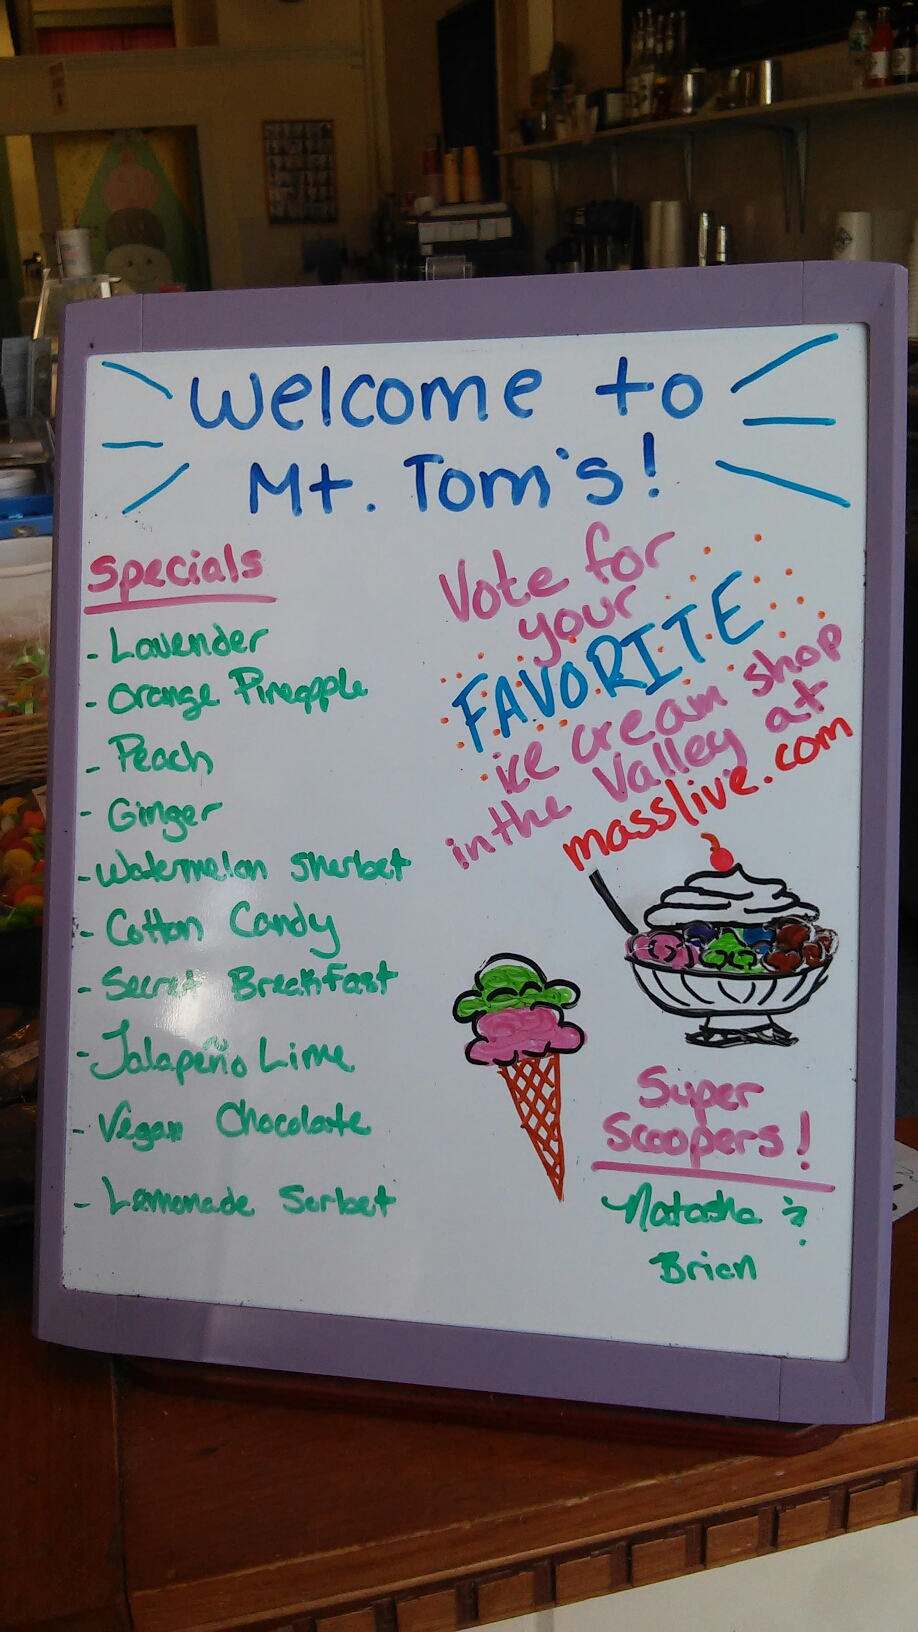 Welcome to
Mt. Tom's!
Specials
- Lavender
- Orange Pineapple
- Peach
- Ginger
- Watermelon Sherbet
- Cotton Candy
- Secret Breakfast
- Jalapeño Lime
- Vegan Chocolate
- Lemonade Sorbet
Vote for
your
FAVORITE
ice cream shop
in the Valley at
masslive.com
Super
Scoopers!
Natasha &
Brian